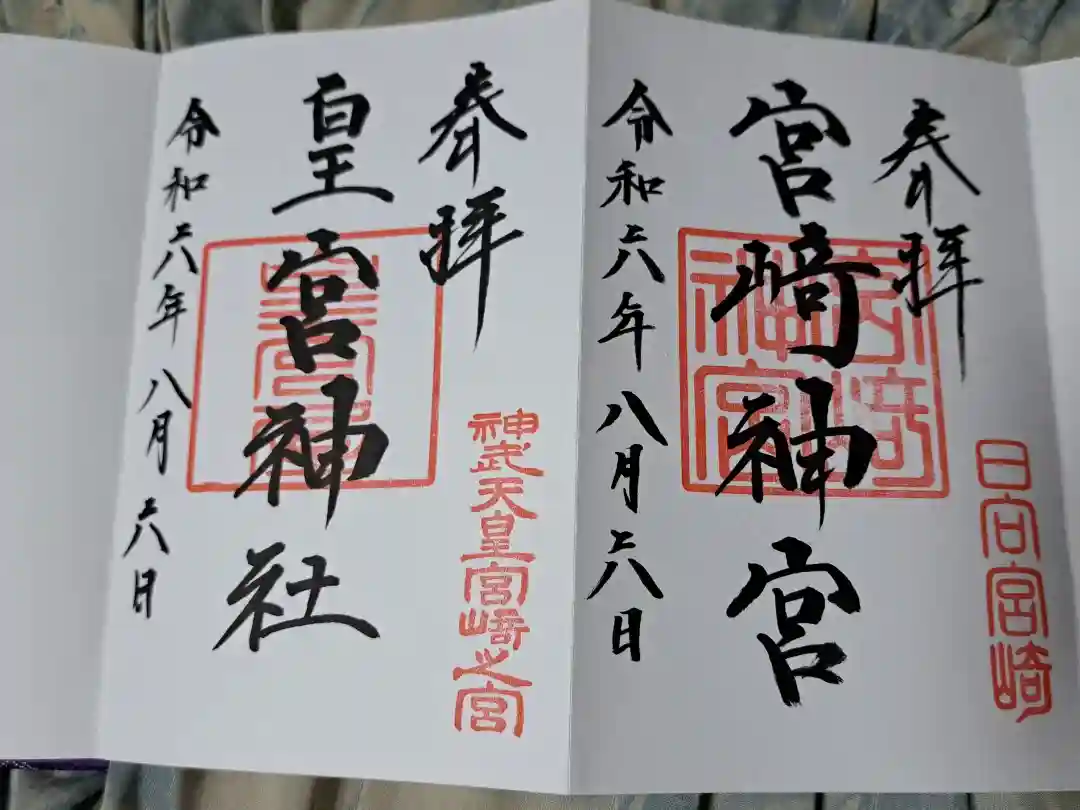 奉拝
日向宮崎
宮﨑神宮
宮崎神宮
令和六年八月六日
奉拝
神武天皇宮崎之宮
皇宮神社
令和六年八月六日